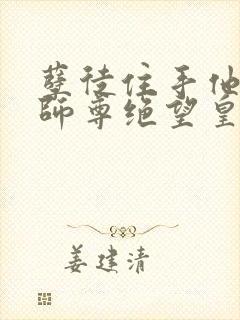 孽徒住手他
师尊绝望皇
姜建清